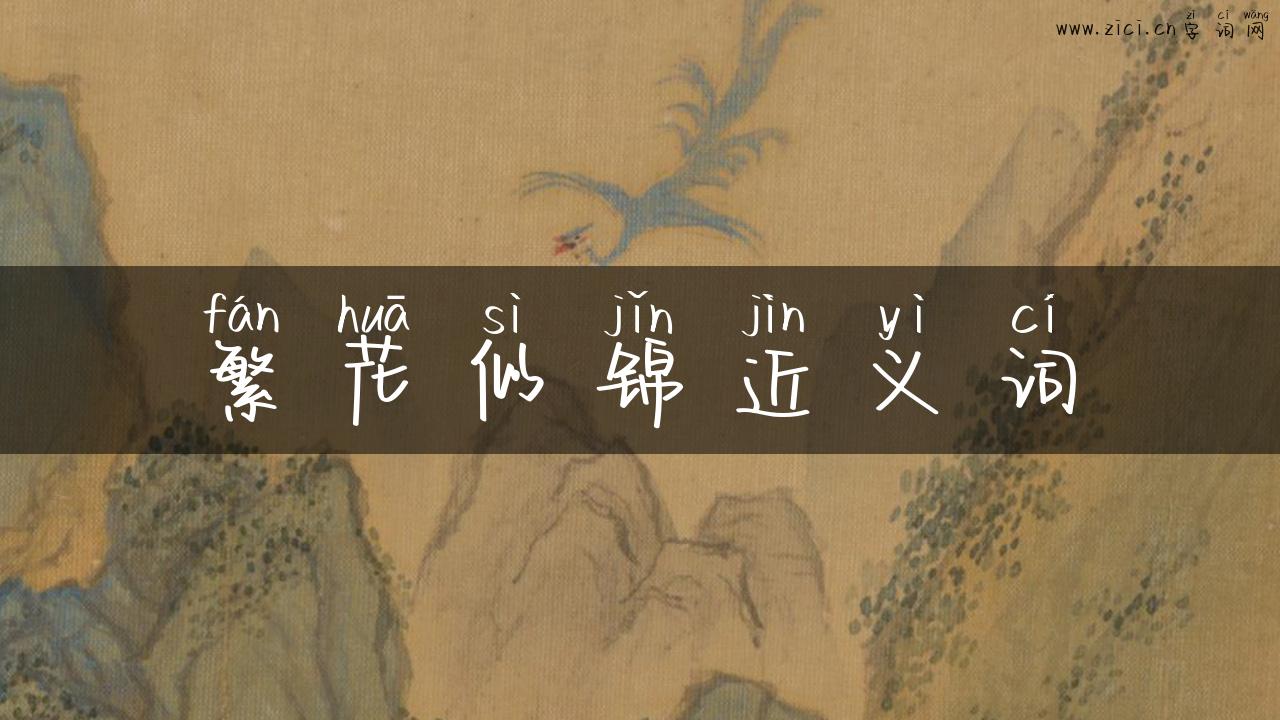 zì cí wǎng
www.zici.cn字词网
fán huā sì jǐn jìn yì cí
繁花似锦近义词